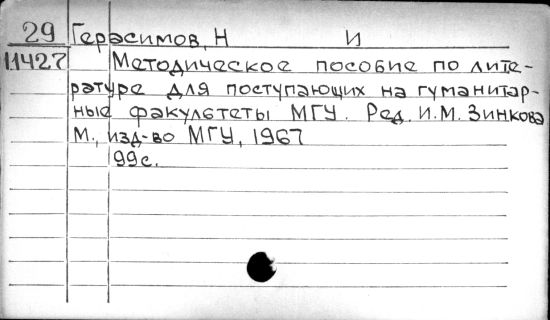 29 Герасимов, Н И
11427 Методическое пособие по лите-
ратуре для поступающих на гуманитар-
ные факультеты МГУ. Ред. И.М. Зинкова
М., изд-во МГУ, 1967
99с.